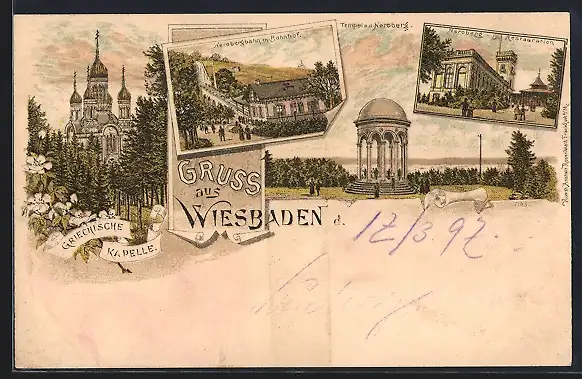 Tempel a.d. Neroberg.
Nerobergbahn m. Bahnhof.
Neroberg Restauration
GRUSS
aus
WIESBADEN d. 17/3. 97.
GRIECHISCHE
KAPELLE.